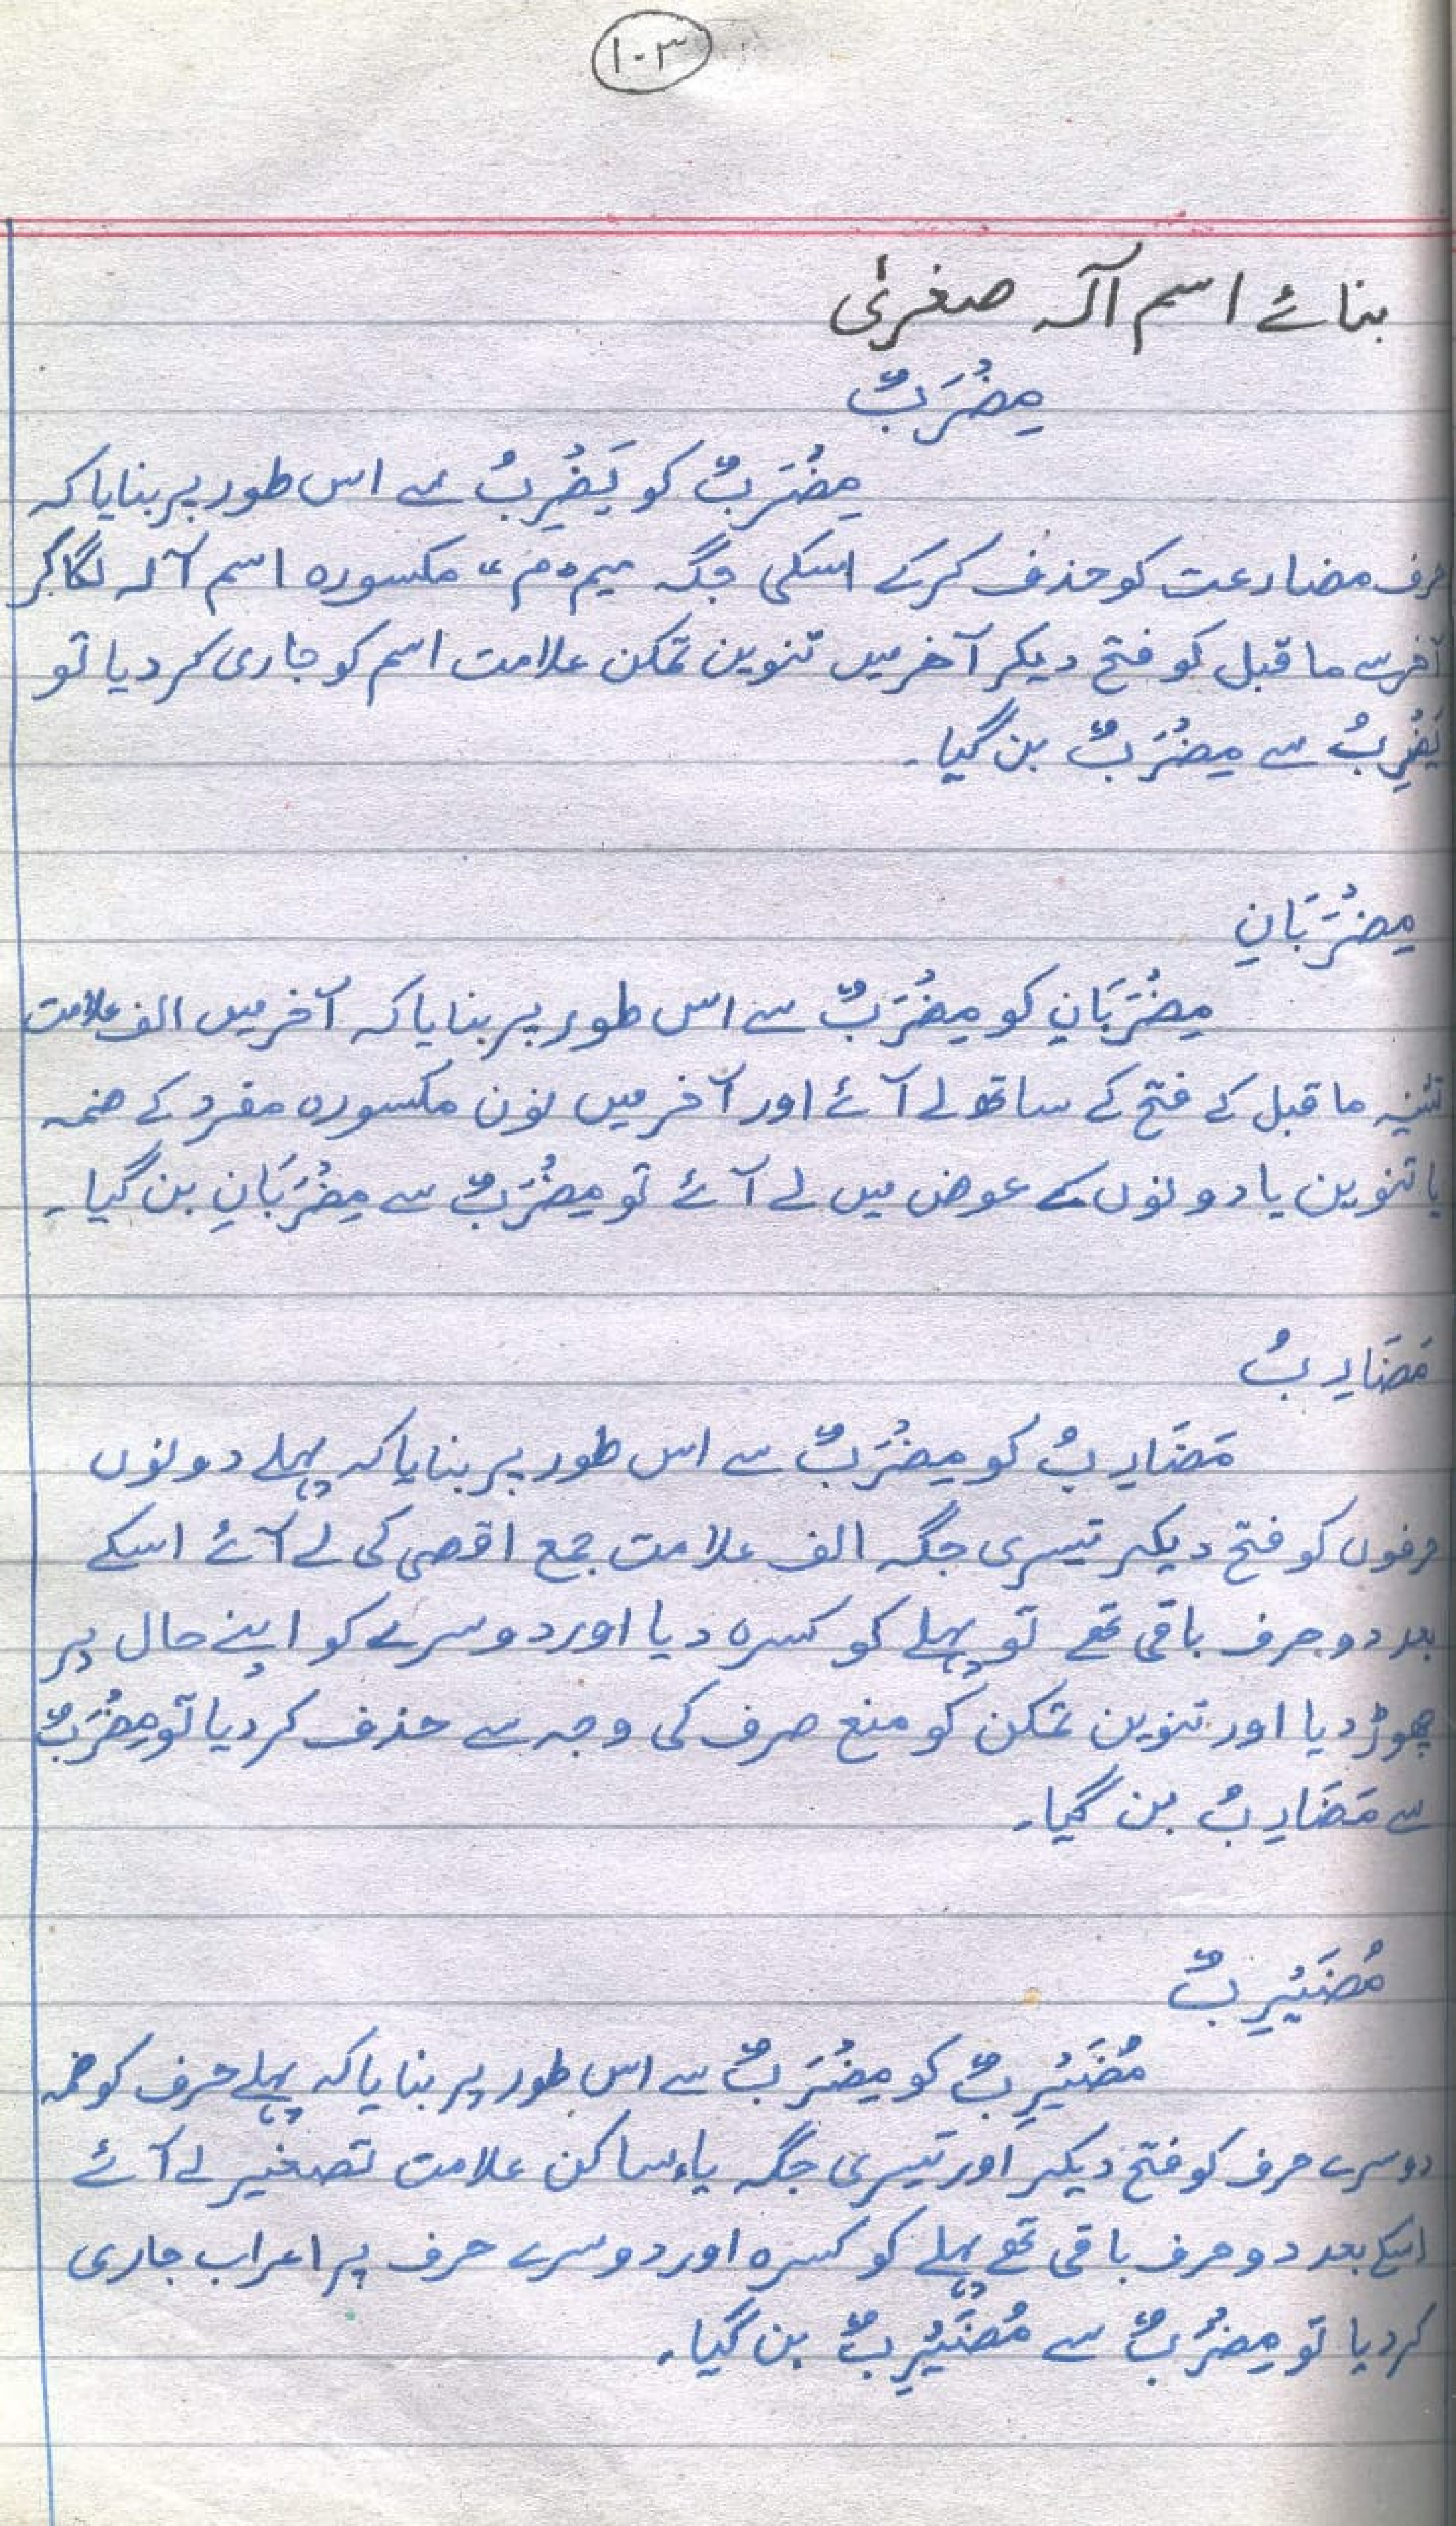 ۱۰۳
بنائے اسم آلہ صغریٰ
مِضْرَبٌ
مِضْرَبٌ کو یَضْرِبُ سے اس طور پر بنایا کہ
حرف مضارعت کو حذف کرکے اسکی جگہ میم "م" مکسورہ اسم آلہ لگا کر
آخر سے ما قبل کو فتح دیکر آخر میں تنوین تمکن علامت اسم کو جاری کر دیا تو
یَضْرِبُ سے مِضْرَبٌ بن گیا۔
مِضْرَبَانِ
مِضْرَبَانِ کو مِضْرَبٌ سے اس طور پر بنایا کہ آخر میں الف علامت
تثنیہ ما قبل کے فتح کے ساتھ لے آئے اور آخر میں نون مکسورہ مفرد کے ضمہ
یا تنوین یا دونوں کے عوض میں لے آئے تو مِضْرَبٌ سے مِضْرَبَانِ بن گیا۔
مَضَارِبُ
مَضَارِبُ کو مِضْرَبٌ سے اس طور پر بنایا کہ پہلے دونوں
حرفوں کو فتح دیکر تیسری جگہ الف علامت جمع اقصی کی لے آئے اسکے
بعد دو حرف باقی تھے تو پہلے کو کسرہ دیا اور دوسرے کو اپنے حال پر
چھوڑ دیا اور تنوین تمکن کو منع صرف کی وجہ سے حذف کر دیا تو مِضْرَبٌ
سے مَضَارِبُ بن گیا۔
مُضَیْرِبٌ
مُضَیْرِبٌ کو مِضْرَبٌ سے اس طور پر بنایا کہ پہلے حرف کو ضمہ
دوسرے حرف کو فتح دیکر اور تیسری جگہ یاء ساکن علامت تصغیر لے آئے
اسکے بعد دو حرف باقی تھے پہلے کو کسرہ اور دوسرے حرف پر اعراب جاری
کر دیا تو مِضْرَبٌ سے مُضَیْرِبٌ بن گیا۔